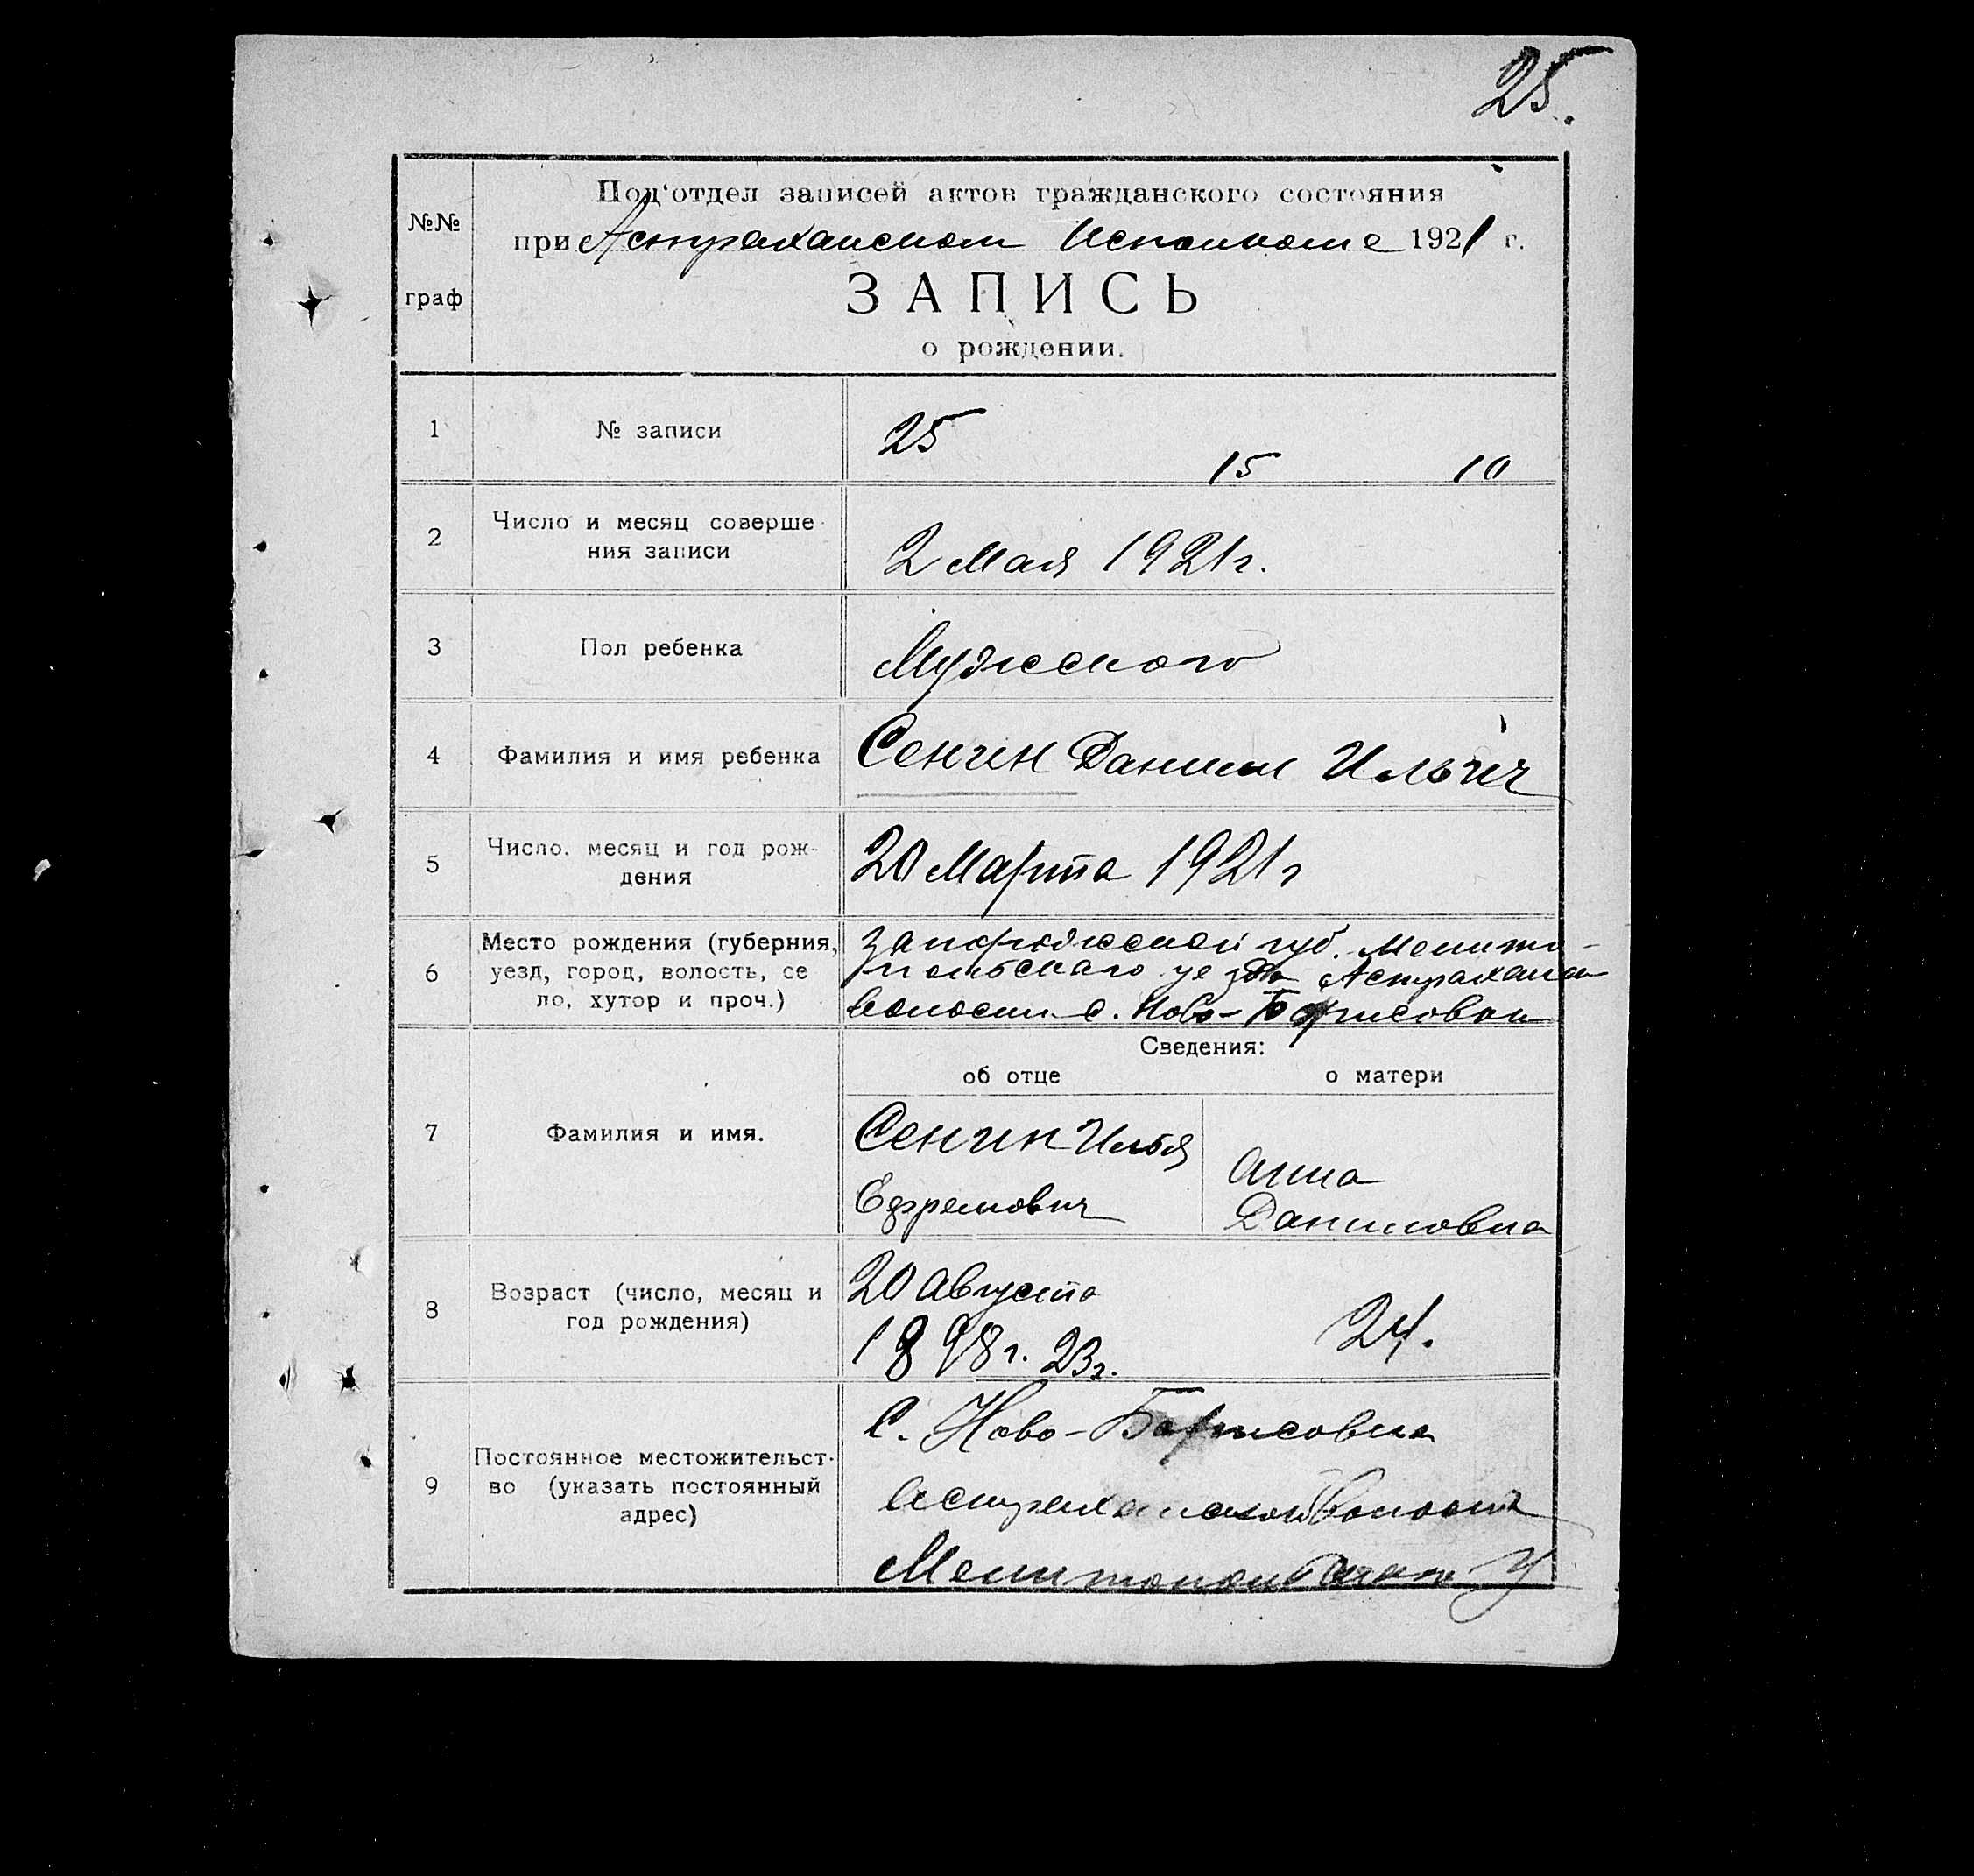 25.
№№
граф
Под'отдел записей актов гражданского состояния
при Астраханском Исполкоме 1921 г.
ЗАПИСЬ
о рождении.
1
№ записи
25
15 10
2
Число и месяц соверше
ния записи
2 Мая 1921г.
3
Пол ребенка
Мужского
4
Фамилия и имя ребенка
Сенчен Даниил Ильич
5
Число, месяц и год рож-
дения
20 Марта 1921г
6
Место рождения (губерния,
уезд, город, волость, се
ло, хутор и проч.)
Запорожской губ. Мелито-
польскаго уезда Астрахан
волости с. Ново-Борисовки
Сведения:
об отце
о матери
7
Фамилия и имя.
Сенчен Илья
Ефремович
Анна
Даниловна
8
Возраст (число, месяц и
год рождения)
20 Августа
1898г. 23г.
24.
9
Постоянное местожительст-
во (указать постоянный
адрес)
С. Ново-Борисовка
Астраханской Волости
Мелитопольскаго У